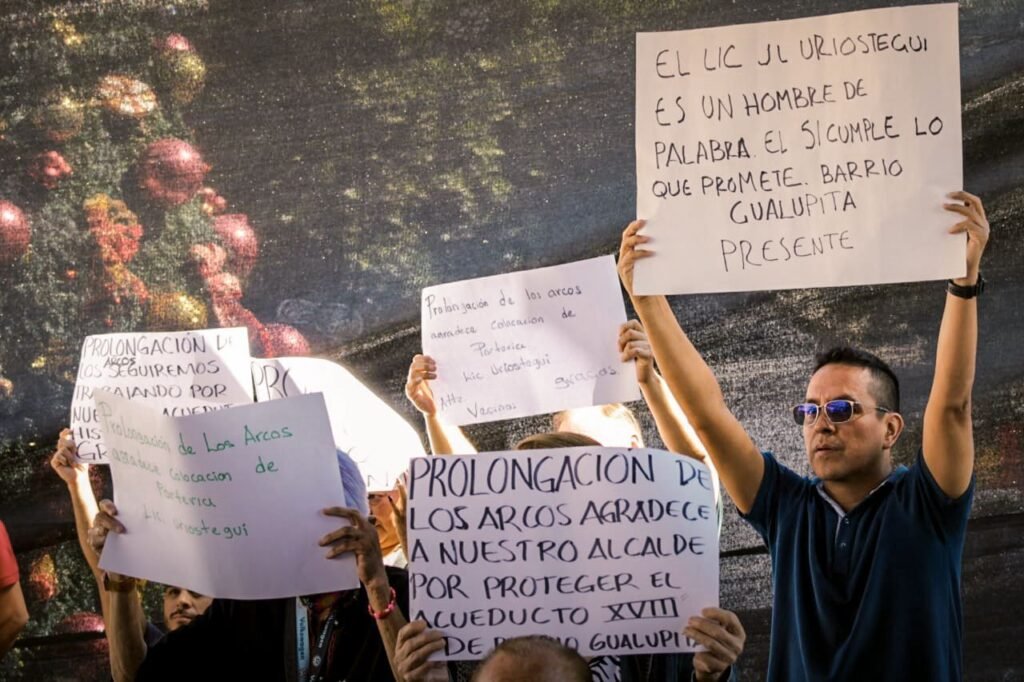 EL LIC JL URIOSTEGUI
ES UN HOMBRE DE
PALABRA. EL SI CUMPLE LO
QUE PROMETE. BARRIO
GUALUPITA
PRESENTE
Prolongación de los arcos
agradece colocación de
Porteria
Lic. Uriostegui
gracias
Att:
Vecinos
PROLONGACIÓN DE
LOS ARCOS SEGUIREMOS
TRABAJANDO POR
ACUEDUCTO
Prolongación de Los Arcos
agradece colocación de
Porteria
Lic. Uriostegui
PROLONGACION DE
LOS ARCOS AGRADECE
A NUESTRO ALCALDE
POR PROTEGER EL
ACUEDUCTO XVIII
DE GUALUPITA
Volkswagen